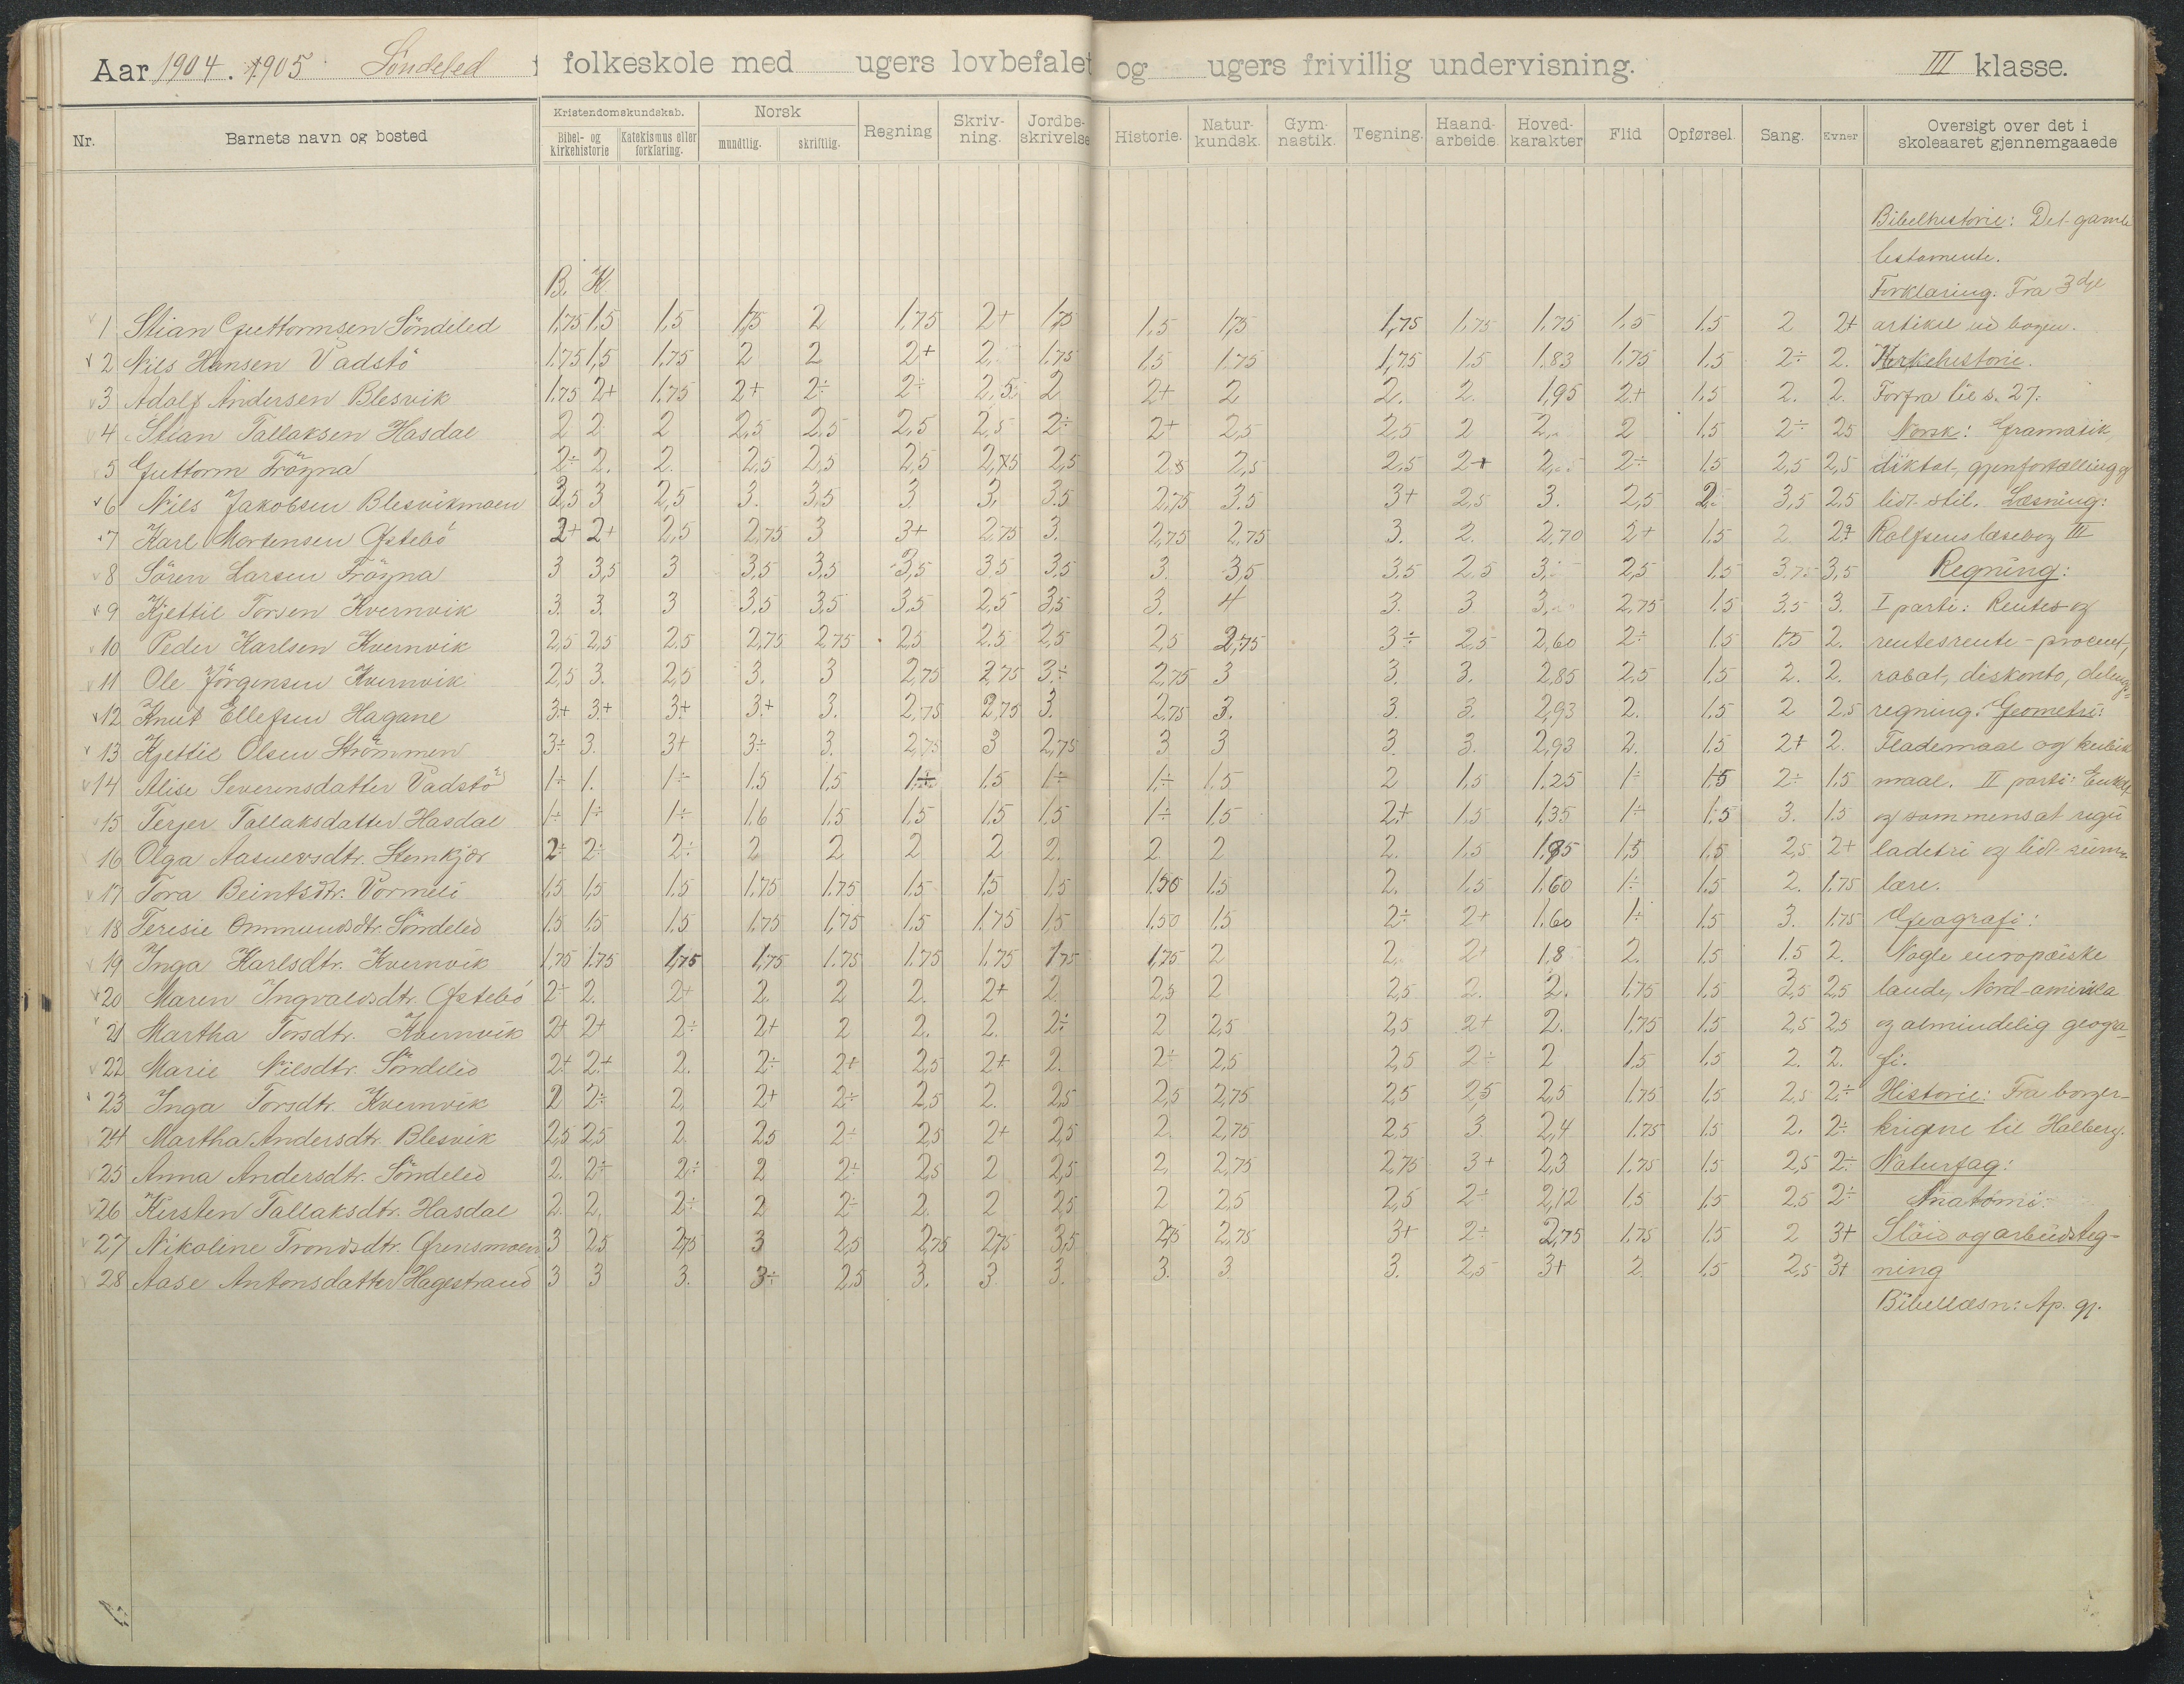 Aar 1904. 1905 Söndeled folkeskole med ugers lovbefalet og ugers frivillig undervisning. III klasse.
Nr. Barnets navn og bosted Kristendomskundskab. Bibel- og kirkehistorie Katekismus eller forklaring. Norsk mundtlig. skriftlig. Regning Skriv-ning. Jordbe-skrivelse Historie. Natur-kundsk. Gym-nastik. Tegning. Haand-arbeide. Hoved-karakter Flid Opførsel. Sang. Evner Oversigt over det i skoleaaret gjennemgaaede
Bibelhistorie: Det gamle
testamente.
B. K. Forklaring. Fra 3dje
1 Stian Guttormsen Söndeled 1,75 1,5 1,5 1,75 2 1,75 2+ 1,75 1,5 1,75 1,75 1,75 1,75 1,5 1,5 2 2+ artikel ud bogen.
2 Nils Hansen Vadstö 1,75 1,5 1,75 2 2 2+ 2 1,75 1,5 1,75 1,75 1,5 1,83 1,75 1,5 2÷ 2. Kirkehistorie.
3 Adolf Andersen Blesvik 1,75 2+ 1,75 2+ 2÷ 2÷ 2,5 2 2+ 2 2. 2. 1,95 2+ 1,5 2. 2. Forfra til s. 27.
4 Stian Tallaksen Hasdal 2 2 2 2,5 2,5 2,5 2,5 2÷ 2+ 2,5 2,5 2 2. 2 1,5 2÷ 2,5 Norsk: Gramatik,
5 Guttorm Frögna 2÷ 2. 2. 2,5 2,5 2,5 2,75 2,5 2,5 2,5 2,5 2+ 2 2÷ 1,5 2,5 2,5 diktat, gjenfortælling og
6 Nils Jakobsen Blesvikmoen 3,5 3 2,5 3. 3,5 3 3. 3,5 2,75 3,5 3+ 2,5 3. 2,5 2. 3,5 2,5 lidt stil. Læsning:
7 Karl Mortensen Østebö 2+ 2+ 2,5 2,75 3 3+ 2,75 3. 2,75 2,75 3. 2. 2,70 2+ 1,5 2 2+ Rolfsens læsebog III
8 Sören Larsen Frögna 3 3,5 3 3,5 3,5 3,5 3,5 3,5 3. 3,5 3,5 2,5 3. 2,5 1,5 3,75 3,5 Regning:
9 Kjettil Torsen Kvernvik 3. 3. 3 3,5 3,5 3,5 2,5 3,5 3. 4 3. 3 3. 2,75 1,5 3,5 3. I parti: Rentes og
10 Peder Karlsen Kvernvik 2,5 2,5 2,5 2,75 2,75 2,5 2,5 2,5 2,5 2,75 3÷ 2,5 2,60 2÷ 1,5 1,75 2. rentesrente - procent,
11 Ole Jörgensen Kvernvik 2,5 3. 2,5 3. 3 2,75 2,75 3÷ 2,75 3 3. 3. 2,85 2,5 1,5 2. 2. rabat, diskonto, delings-
12 Knut Ellefsen Hagane 3+ 3+ 3+ 3+ 3. 2,75 2,75 3. 2,75 3. 3. 3. 2,93 2. 1,5 2 2,5 regning. Geometri:
13 Kjettil Olsen Strömmen 3÷ 3. 3+ 3÷ 3. 2,75 3 2,75 3 3 3. 3. 2,93 2. 1,5 2+ 2. Flademaal og kubik
14 Alise Severensdatter Vadstö 1÷ 1. 1÷ 1,5 1,5 1÷ 1,5 1÷ 1÷ 1,5 2 1,5 1,25 1÷ 1,5 2÷ 1,5 maal. II parti: Enkel
15 Terjer Tallaksdatter Hasdal 1÷ 1÷ 1÷ 1,6 1,5 1,5 1,5 1,5 1÷ 1,5 2+ 1,5 1,35 1÷ 1,5 3. 1,5 og sammensat regu
16 Olga Aasuevsdtr. Stemkjær 2÷ 2÷ 2÷ 2 2 2 2 2. 2 2 2. 1,5 1,85 1,5 1,5 2,5 2+ ladetri og lidt sum-
17 Tora Beintsdtr. Vormeli 1,5 1,5 1,5 1,75 1,75 1,5 1,5 1,5 1,50 1,5 2. 1,5 1,60 1÷ 1,5 2. 1,75 lære.
18 Teresie Ommundsdtr. Söndeled 1,5 1,5 1,5 1,75 1,75 1,5 1,75 1,5 1,50 1,5 2÷ 2+ 1,60 1÷ 1,5 3. 1,75 Geografi:
19 Inga Karlsdtr. Kvernvik 1,75 1,75 1,75 1,75 1,75 1,75 1,75 1,75 1,75 2 2. 2+ 1,8 2. 1,5 1,5 2. Nogle europæiske
20 Maren Ingvaldsdtr. Østebö 2÷ 2. 2+ 2. 2 2. 2+ 2. 2,5 2 2,5 2. 2. 1,75 1,5 3,5 2,5 lande, Nord-amerika
21 Martha Torsdtr. Kvernvik 2+ 2+ 2÷ 2+ 2 2. 2. 2÷ 2 2,5 2,5 2+ 2. 1,75 1,5 2,5 2,5 og almindelig geogra-
22 Marie Nilsdtr. Söndeled 2+ 2+ 2. 2÷ 2+ 2,5 2+ 2. 2÷ 2,5 2,5 2÷ 2 1,5 1,5 2. 2. fi.
23 Inga Torsdtr. Kvernvik 2 2÷ 2. 2+ 2÷ 2,5 2. 2,5 2,5 2,75 2,5 2,5 2,5 1,75 1,5 2,5 2÷ Historie: Fra borger-
24 Martha Andersdtr. Blesvik 2,5 2,5 2. 2,5 2÷ 2,5 2+ 2,5 2. 2,75 2,5 3 2,4 1,75 1,5 2. 2÷ krigene til Holberg.
25 Anna Andersdtr. Söndeled 2. 2÷ 2÷ 2 2÷ 2,5 2 2,5 2, 2,75 2,75 3+ 2,3 1,75 1,5 2,5 2÷ Naturfag:
26 Kirsten Tallaksdtr. Hasdal 2. 2. 2÷ 2 2÷ 2. 2 2,5 2 2,5 2,5 2÷ 2,12 1,5 1,5 2,5 2÷ Anatomi.
27 Nikoline Trondsdtr. Grensmoen 3 2,5 2,75 3 2,5 2,75 2,75 3,5 2,75 2,75 3+ 2÷ 2,75 1,75 1,5 2 3+ Slöid og arbeidsteg-
28 Aase Antonsdatter Hagestrand 3 3 3. 3÷ 2,5 3. 3. 3. 3. 3 3. 2,5 3+ 2 1,5 2,5 3+ ning
Bibellæsn: Ap. gj.